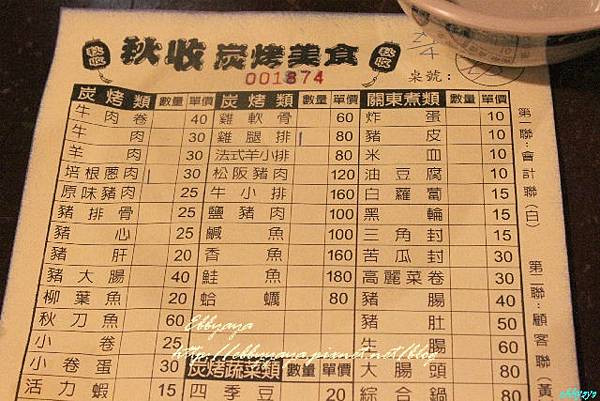 秋收 秋收 炭烤美食 秋收
001874
桌號：
炭烤類 數量 單價 炭烤類 數量 單價 關東煮類 數量 單價
牛肉卷 40 雞軟骨 60 炸蛋 10
牛肉 30 雞腿排 80 豬皮 10
羊肉 30 法式羊小排 80 米血 10
培根蔥肉 30 松阪豬肉 120 油豆腐 10
原味豬肉 25 牛小排 160 白蘿蔔 15
豬排骨 25 鹽豬肉 100 黑輪 15
豬心 25 鹹魚 100 三角封 15
豬肝 20 香魚 160 苦瓜封 30
豬大腸 40 鮭魚 180 高麗菜卷 30
柳葉魚 20 蛤蠣 80 豬腸 40
秋刀魚 60 豬肚 50
小卷 25 腸 60
小卷蛋 30 炭烤蔬菜類 數量 單價 大腸頭 80
活力蝦 15 四季豆 20 綜合鍋
第一聯：會計聯（白）
第二聯：顧客聯（黃
Ebbyaya
http://ebbyaya.pixnet.net/blog
ebbyaya